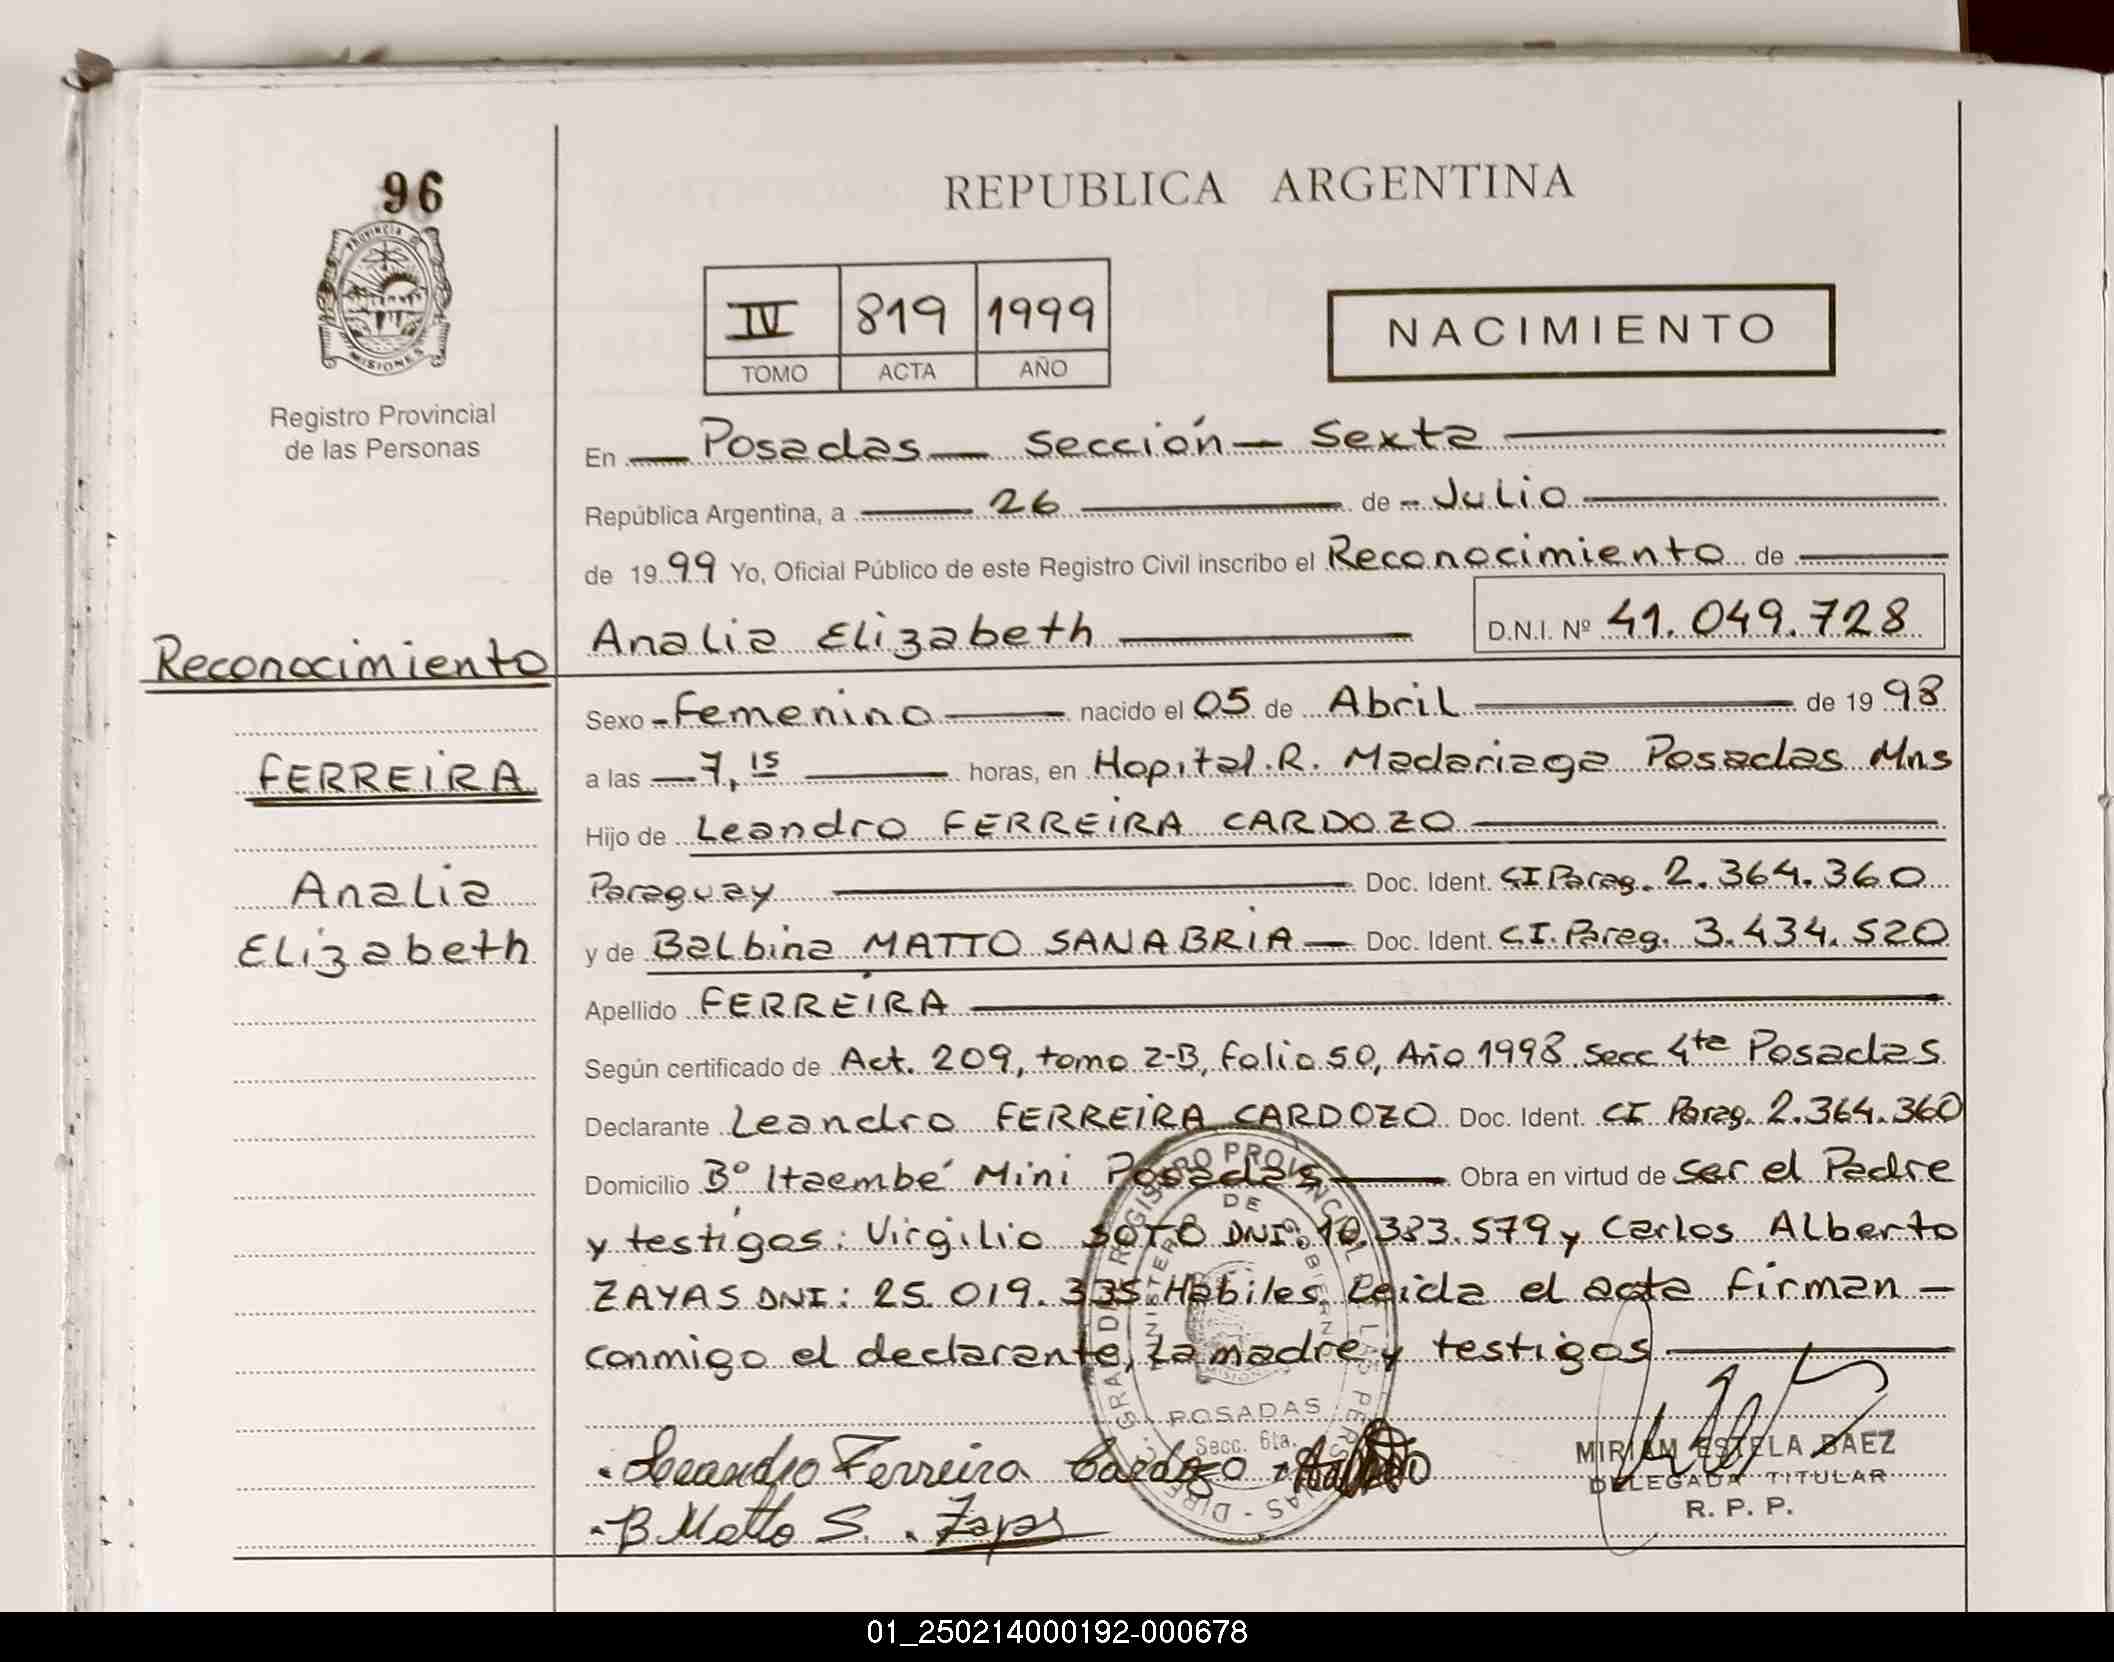 96
PROVINCIA DE
MISIONES
Registro Provincial
de las Personas
REPUBLICA ARGENTINA
IV 819 1999
TOMO ACTA AÑO
NACIMIENTO
En Posadas Sección Sexta
República Argentina, a 26 de Julio
de 1999 Yo, Oficial Público de este Registro Civil inscribo el Reconocimiento de
Analia Elizabeth D.N.I. Nº 41.049.728
Reconocimiento
FERREIRA
Analia
Elizabeth
Sexo Femenino nacido el 05 de Abril de 1998
a las 7,15 horas, en Hopital R. Madariaga Posadas Mns
Hijo de Leandro FERREIRA CARDOZO
Paraguay Doc. Ident. CI Parag. 2.364.360
y de Balbina MATTO SANABRIA Doc. Ident. C.I. Parag. 3.434.520
Apellido FERREIRA
Según certificado de Act. 209, tomo 2-B, folio 50, Año 1998 Secc 4ta Posadas
Declarante Leandro FERREIRA CARDOZO Doc. Ident. CI Parag. 2.364.360
Domicilio Bº Itaembé Mini Posadas Obra en virtud de ser el Padre
y testigos: Virgilio SOTO DNI: 10.383.579 y Carlos Alberto
ZAYAS DNI: 25.019.335 Habiles. Leida el acta firman -
conmigo el declarante, la madre y testigos
POSADAS
Secc. 6ta.
Leandro Ferreira Cardozo
B Matto S. Zayas
MIRIAM ESTELA BAEZ
DELEGADA TITULAR
R. P. P.
01_250214000192-000678